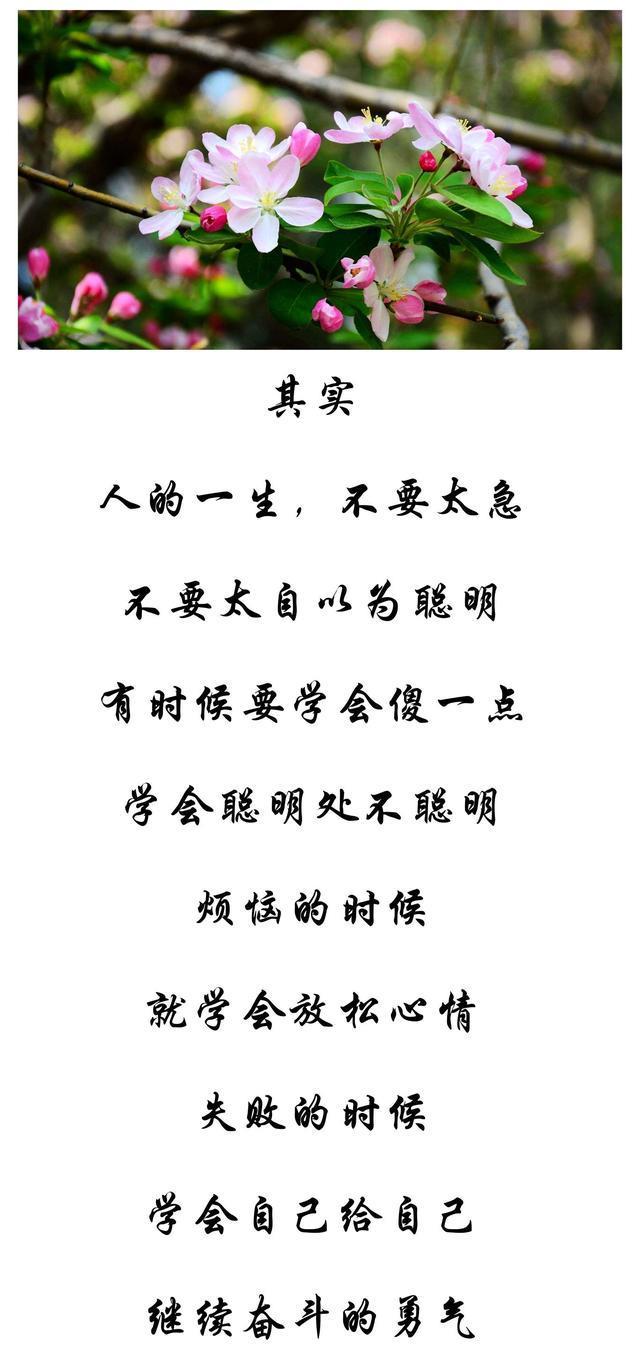 其实
人的一生，不要太急
不要太自以为聪明
有时候要学会傻一点
学会聪明处不聪明
烦恼的时候
就学会放松心情
失败的时候
学会自己给自己
继续奋斗的勇气